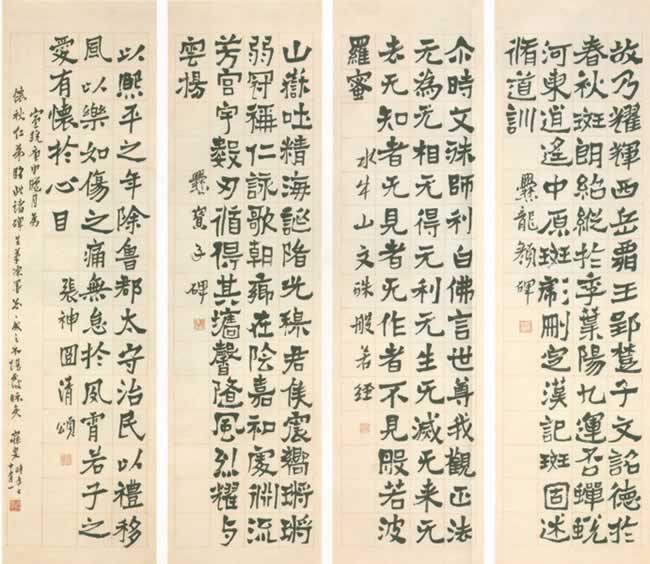 故乃耀輝西岳霸王郢楚子文詺德於
春秋斑朗紹縱於季葉陽九運否蟬蛻
河東逍遙中原斑彪刪定漢記斑固述
脩道訓
爨龍顏碑
尒時文洙師利白佛言世尊我觀正法
无為无相无得无利无生无滅无来无
去无知者无見者无作者不見般若波
羅蜜
水牛山文殊般若經
山嶽吐精海誕陼光穆君侯震嚮鏘鏘
弱冠稱仁詠歌朝鄉在陰嘉和處淵流
芳宮宇數刃循得其牆馨隨風烈耀与
雲揚
爨寶子碑
以熙平之年除魯郡太守治民以禮移
風以樂如傷之痛無怠於夙宵若子之
愛有懷於心目
張神冏清頌
宣統庚申臘月為
懷秋仁弟臨此諸碑 寐叟時年七十一